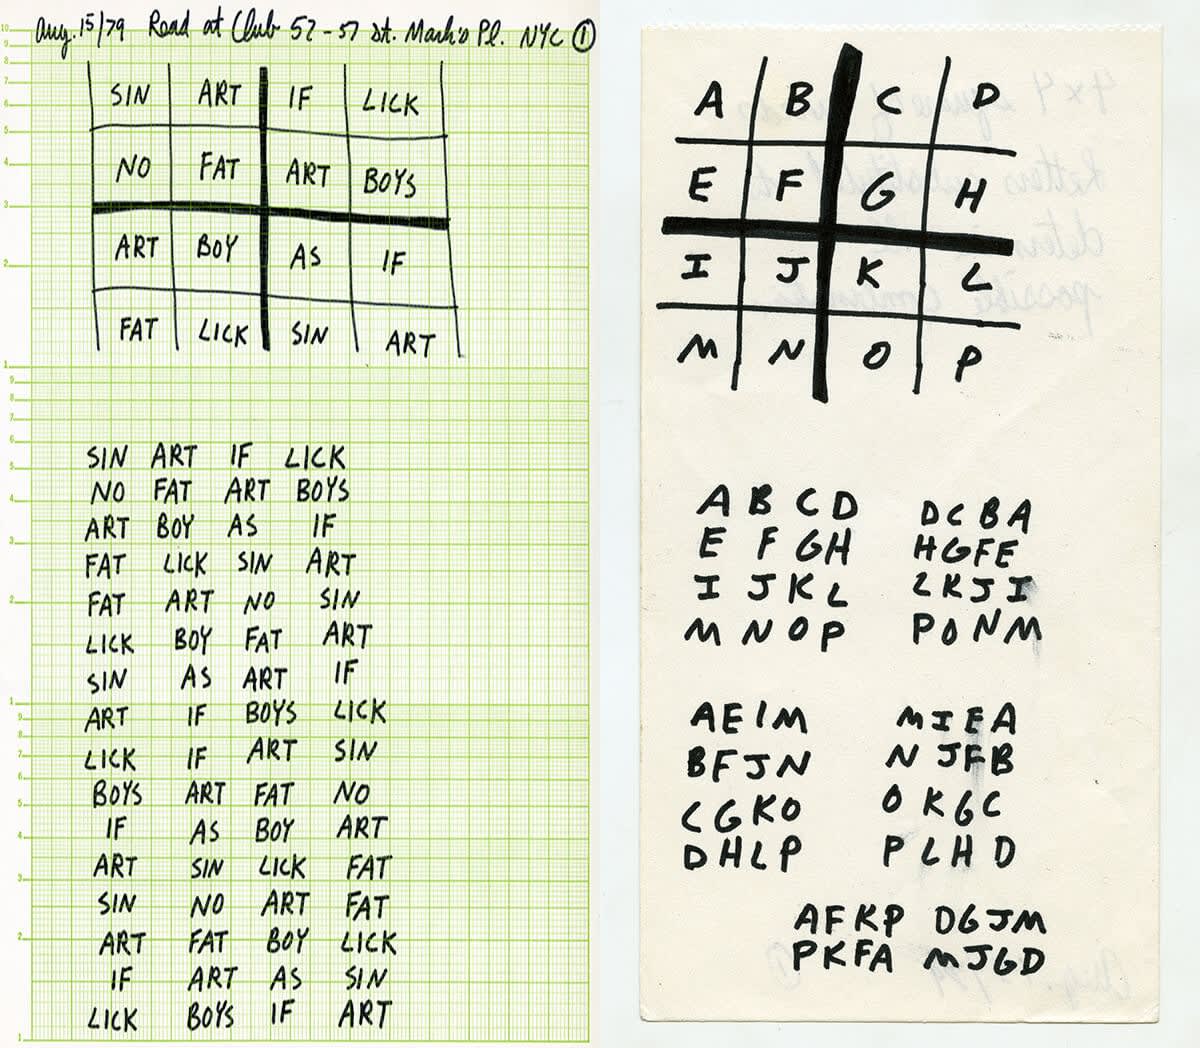 Aug. 15/79 Read at Club 57 - 57 St. Mark's Pl. NYC 1
SIN ART IF LICK
NO FAT ART BOYS
ART BOY AS IF
FAT LICK SIN ART
SIN ART IF LICK
NO FAT ART BOYS
ART BOY AS IF
FAT LICK SIN ART
FAT ART NO SIN
LICK BOY FAT ART
SIN AS ART IF
ART IF BOYS LICK
LICK IF ART SIN
BOYS ART FAT NO
IF AS BOY ART
ART SIN LICK FAT
SIN NO ART FAT
ART FAT BOY LICK
IF ART AS SIN
LICK BOYS IF ART
A B C D
E F G H
I J K L
M N O P
A B C D DCBA
E F GH HGFE
I J K L LKJI
M N O P PONM
AEIM MIEA
BFJN NJFB
CGKO OKGC
DHLP PLHD
AFKP DGJM
PKFA MJGD